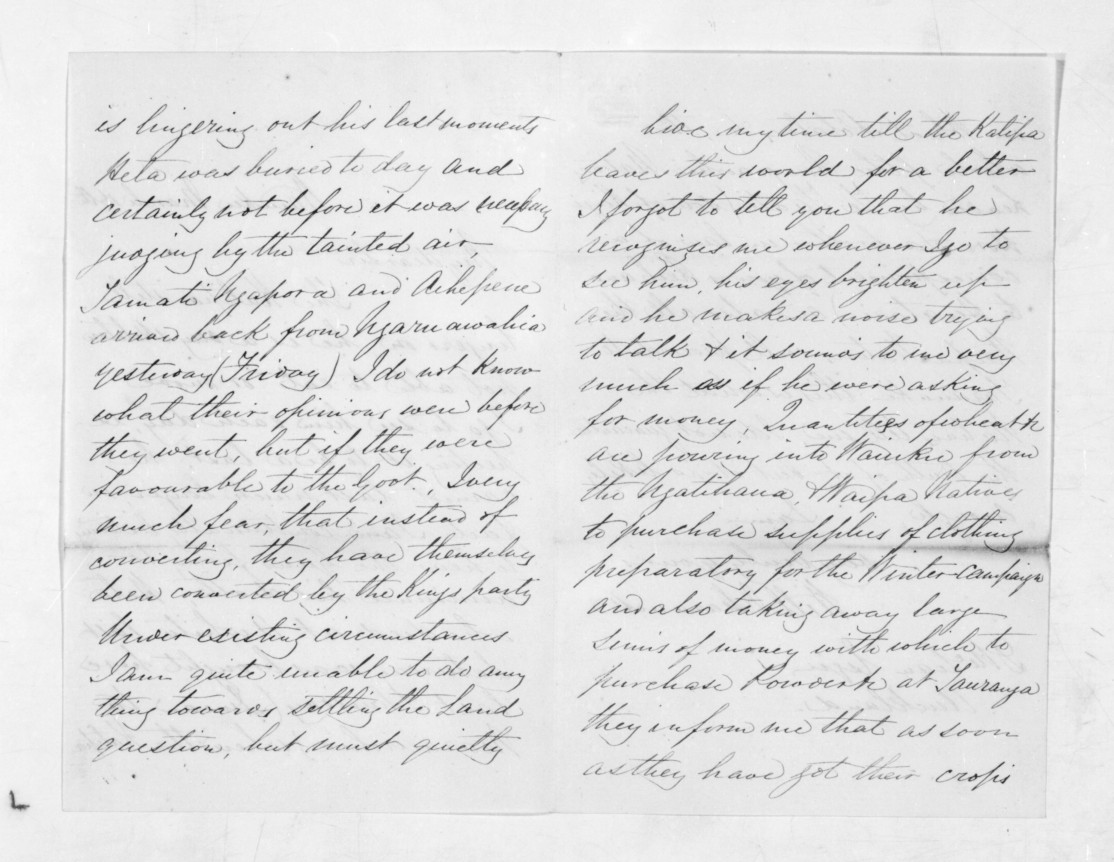 is lingering out his last moments
Heta was buried to day and
certainly not before it was necessary
judging by the tainted air,
Tamati Ngapora and Aihepene
arrived back from Ngaruawahia
yesterday (Friday) I do not know
what their opinions were before
they went, but if they were
favourable to the Govt., I very
much fear, that instead of
converting, they have themselves
been converted by the Kings party
Under existing circumstances
I am quite unable to do any
thing towards settling the Land
question, but must quietly
bide my time till the Katipa
leaves this world for a better
I forgot to tell you that he
recognises me whenever I go to
see him, his eyes brighten up
and he makes a noise trying
to talk & it sounds to me very
much as if he were asking
for money, Quantities of wheat &c
are pouring into Waiuku from
the Ngatihaua & Waipa Natives
to purchase supplies of clothing
preparatory for the Winter campaign
and also taking away large
sums of money with which to
purchase Powder &c at Tauranga
they inform me that as soon
as they have got their crops